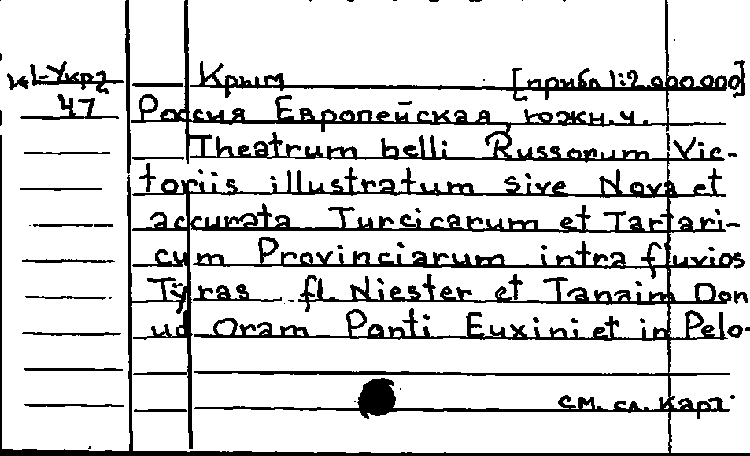 К1-Укр2 Крым [прибл 1:2.000.000]
47 Россия Европейская, южн.ч.
Theatrum belli Russorum Vic-
toriis illustratum sive Nova et
accurata Turcicarum et Tartari-
cum Provinciarum intra fluvios
Tyras fl. Niester et Tanaim Don
ud Oram Ponti Euxini et in Pelo-
см. сл. карт.